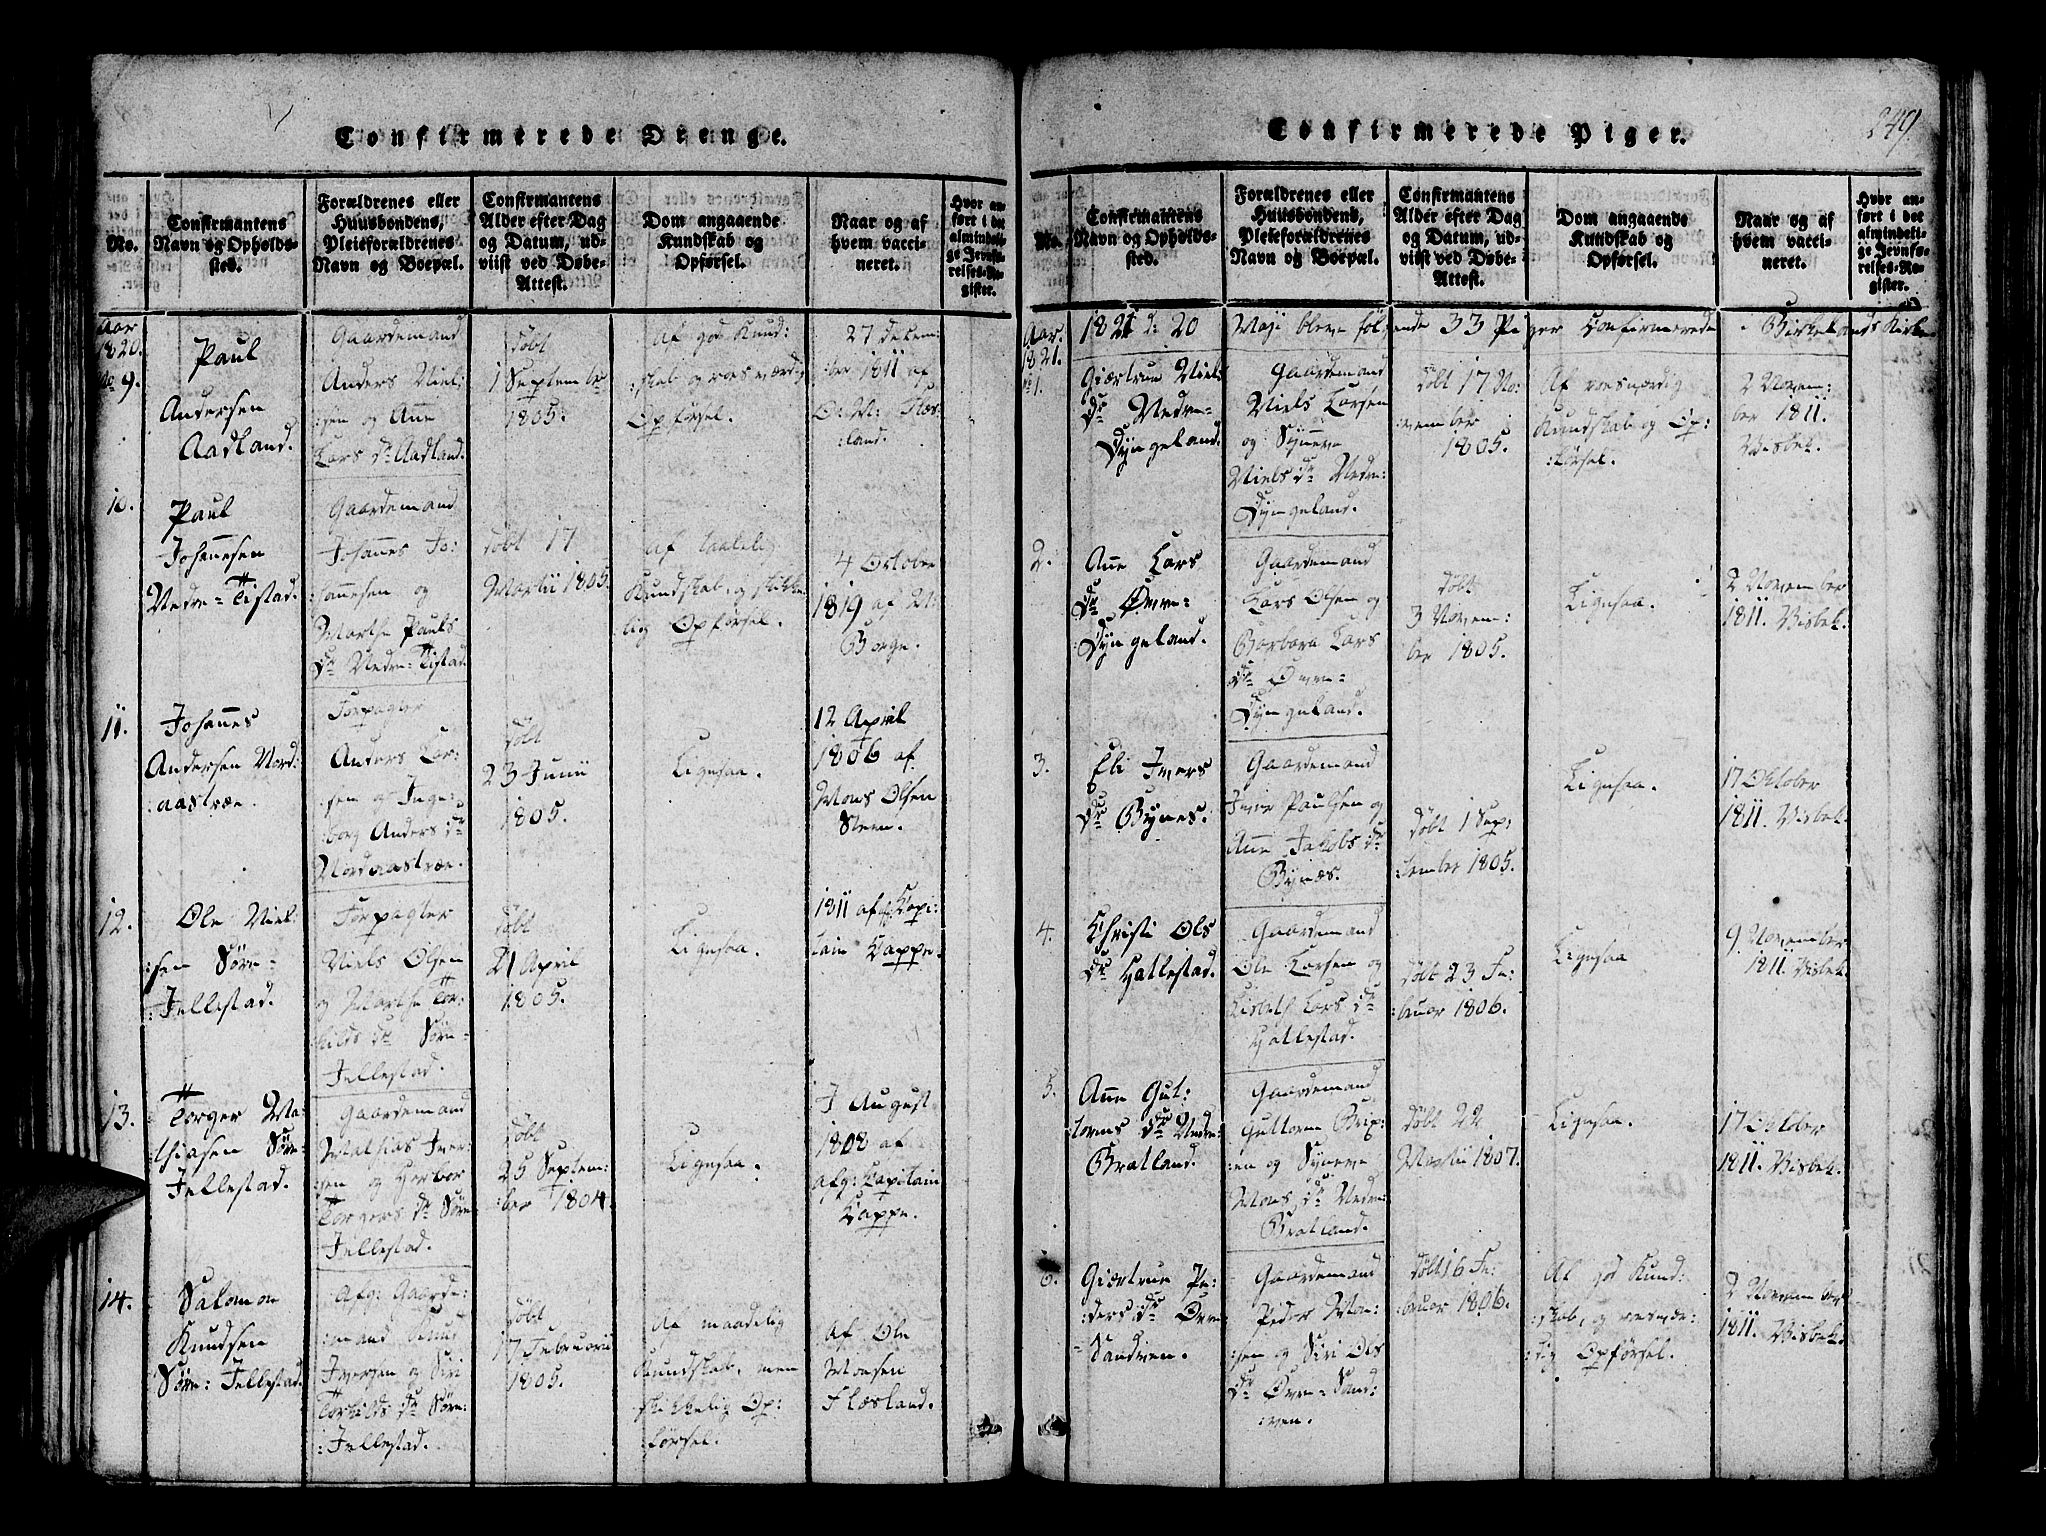 Confirmerede Drenge.
No.
Confirmantens
Navn og Opholds-
sted.
Forældrenes eller
Huusbondens,
Pleieforældrenes
Navn og Boepæl.
Confirmantens
Alder efter Dag
og Datum, ud-
viist ved Døbe-
Attest.
Dom angaaende
Kundskab og
Opførsel.
Naar og af
hvem vacci-
neret.
Hvor an-
ført i det
almindeli-
ge Jevnfø-
relses-Re-
gister.
Aar
1820.
No 9.
Paul
Andersen
Aadland.
Gaardemand
Anders Niel:
:sen og Añe
Lars Dr Aadland.
døbt
1 Septembr
1805.
af god Kund:
:skab og roesværdig
Opførsel.
27 Decem:
:ber 1811 af
O: M: Fles:
:land.
10.
Paul
Johañesen
Nedre=Tistad.
Gaardemand
Johañes Jo:
:hañesen og
Marthe Pauls
Dr Nedre=Tistad.
døbt 17
Martii 1805.
af taalelig
Kundskab, og skikke
lig Opførsel.
4 October
1819 af M:
Borge.
11.
Johañes
Andersen Nord:
:aastræe.
Forpagter
Anders Lar:
:sen og Inge:
:borg Anders Dr
Nordaastræe.
døbt
23 Junii
1805.
Ligesaa.
12 April
1806 af
Mons Olsen
Steen.
12.
Ole Niel:
:sen Søre=
:Jellestad.
Forpagter
Niels Olsen
og Marthe Tor:
:kilds Dr Søre=
:Jellestad.
døbt
21 April
1805.
Ligesaa.
1811 af Capi:
tain Kappe.
13.
Torger Ma:
:thiasen Søre=
:Jellestad.
Gaardemand
Mathias Iver:
:sen og Herbor
Torgers Dr Søre
:Jellestad.
døbt
25 Septem:
:ber 1804.
Ligesaa.
7 August
1808 af
afg: Capitain
Kappe.
14.
Salomon
Knudsen
Søre=Jellestad.
Afg: Gaarde:
:mand Knud
Iversen og Siri
Torkilds Dr Søre:
:Jellestad.
døbt
17 Februarii
1805.
Af maadelig
Kundskab, men
skikkelig Op:
førsel.
Af Ole
Monsen
Flæsland.
Confirmerede Piger.
249
No.
Confirmantens
Navn og Opholds-
sted.
Forældrenes eller
Huusbondens,
Pleieforældrenes
Navn og Boepæl.
Confirmantens
Alder efter Dag
og Datum, ud-
viist ved Døbe-
Attest.
Dom angaaende
Kundskab og
Opførsel.
Naar og af
hvem vacci-
neret.
Hvor an-
ført i det
almindeli-
ge Jevnfø-
relses-Re-
gister.
Aar.
1821.
1821 d: 20 Maji bleve følgende 33 Piger Confirmerede i Birkelands Kirke
No 1.
Giærtrue Niels
Dr Nedre=
Dyngeland.
Gaardemand
Niels Larsen
og Syñeve
Niels Dr Nedre:
Dyngeland.
døbt 17 No:
:vember
1805.
Af roesværdig
Kundskab og Op:
:førsel.
2 Novem:
ber 1811.
Wisbek.
2.
Añe Lars
Dr Øvre=
:Dyngeland.
Gaardemand
Lars Olsen og
Barbara Lars
Dr Øvre=
:Dyngeland.
døbt
3 Novem:
ber 1805.
Ligesaa.
2 November
1811. Visbek.
3.
Eli Ivers
Dr Bynes.
Gaardemand
Iver Paulsen og
Añe Jakobs Dr
Bynæs.
døbt 1 Sep:
:tember 1805.
Ligesaa.
17 Oktober
1811. Visbek.
4.
Christi Ols
Dr Hatlestad.
Gaardemand
Ole Larsen og
Lisbeth Lars Dr
Hatlestad.
døbt 23 Fe:
:bruar 1806.
Ligesaa
9 November
1811. Visbek.
5.
Añe Gut:
torms Dr Nedre=
Bratland.
Gaardemand
Guttorm Brip:
:en og Syneve
Mons Dr Nedre:
Bratland.
døbt 22
Martii 1807.
Ligesaa.
17 Oktober
1811. Visbek.
6.
Giærtrue Pe:
:ders Dr Øvre
=Sandven.
Gaardemand
Peder Mon:
:sen og Siri Ols
Dr Øvre=Sand:
:ven.
døbt 16 Fe:
:bruar 1806.
Af god Kund:
:skab, og roesvær:
:dig Opførsel.
2 November
1811. Wisbek.